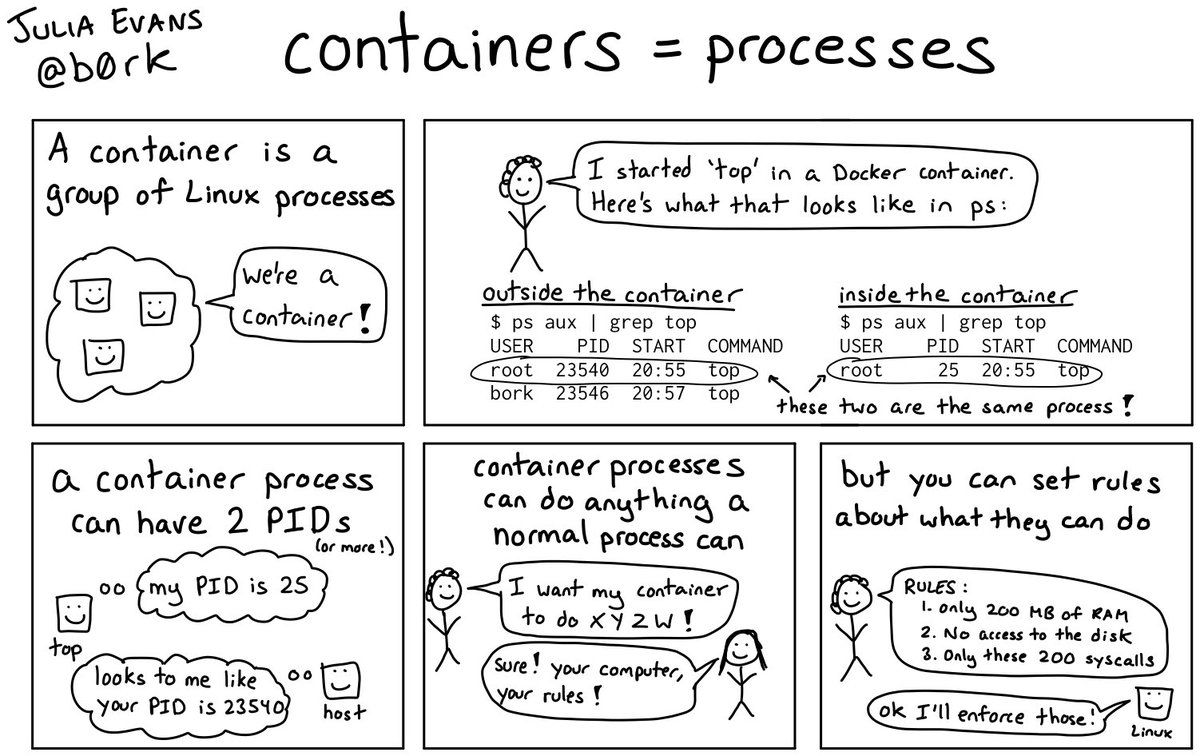 JULIA EVANS
@b0rk
containers = processes
A container is a
group of Linux processes
we're a
container!
I started 'top' in a Docker container.
Here's what that looks like in ps:
outside the container
$ ps aux | grep top
USER PID START COMMAND
root 23540 20:55 top
bork 23546 20:57 top
inside the container
$ ps aux | grep top
USER PID START COMMAND
root 25 20:55 top
these two are the same process!
a container process
can have 2 PIDs
(or more!)
my PID is 25
top
looks to me like
your PID is 23540
host
container processes
can do anything a
normal process can
I want my container
to do X Y Z W!
Sure! your computer,
your rules!
but you can set rules
about what they can do
RULES:
1. only 200 MB of RAM
2. No access to the disk
3. Only these 200 syscalls
ok I'll enforce those!
Linux